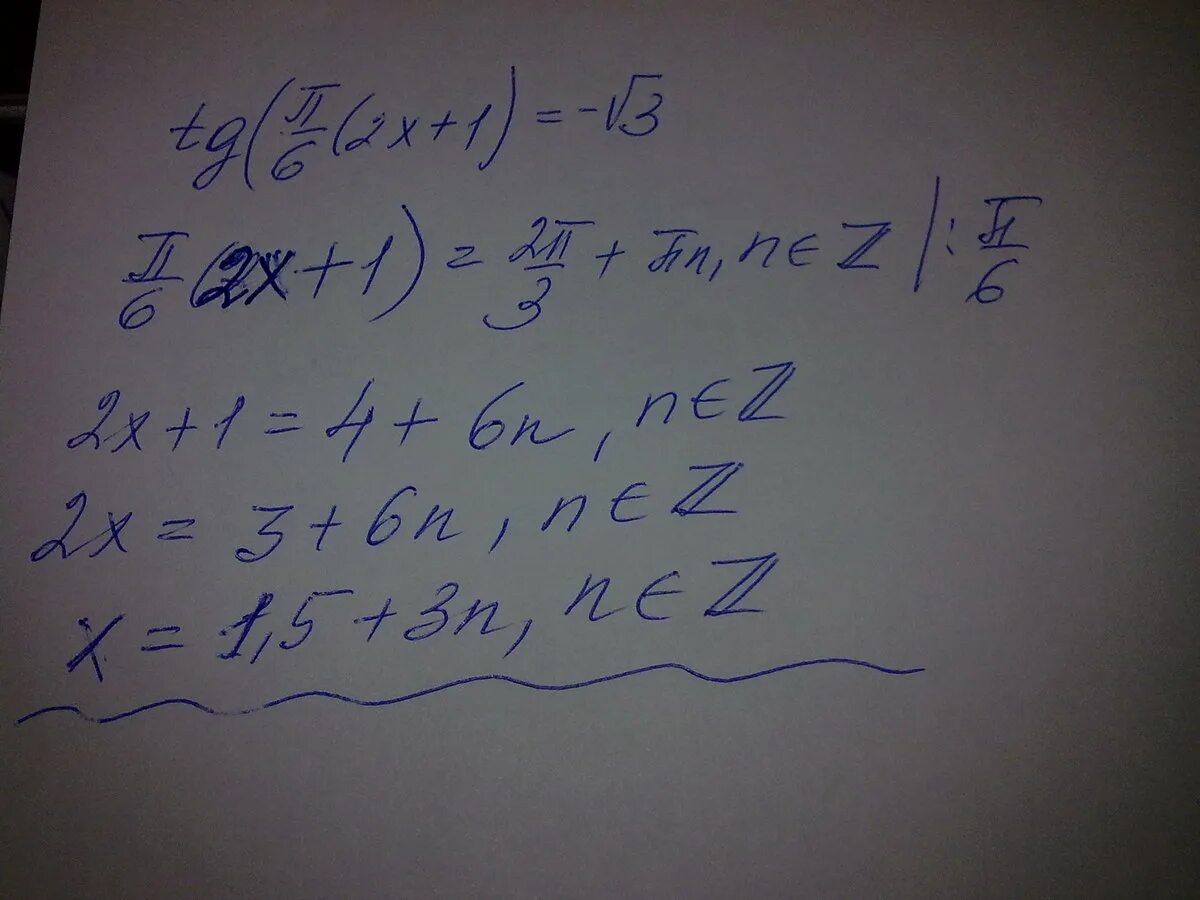 tg(π/6(2x+1) = -√3
π/6(2x+1) = 2π/3 + πn, n∈ℤ |: π/6
2x+1 = 4+6n, n∈ℤ
2x = 3+6n, n∈ℤ
x = 1,5+3n, n∈ℤ